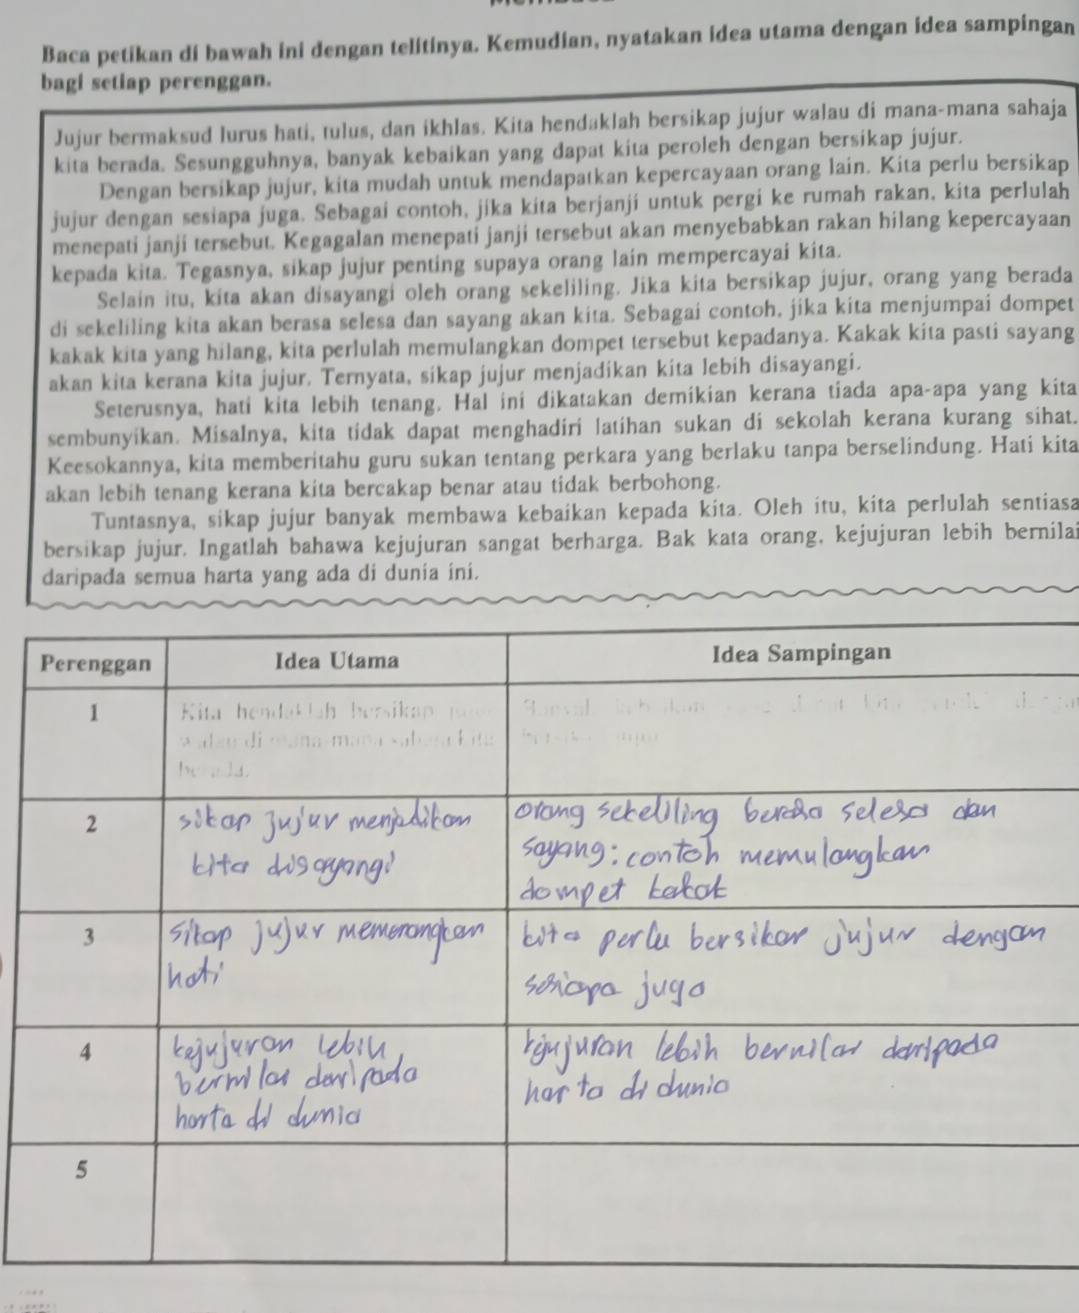 Baca petikan di bawah ini dengan telitinya. Kemudian, nyatakan idea utama dengan idea sampingan
bagi setiap perenggan.
Jujur bermaksud lurus hati, tulus, dan ikhlas. Kita hendaklah bersikap jujur walau di mana-mana sahaja
kita berada. Sesungguhnya, banyak kebaikan yang dapat kita peroleh dengan bersikap jujur.
Dengan bersikap jujur, kita mudah untuk mendapatkan kepercayaan orang lain. Kita perlu bersikap
jujur dengan sesiapa juga. Sebagai contoh, jika kita berjanji untuk pergi ke rumah rakan, kita perlulah
menepati janji tersebut. Kegagalan menepati janji tersebut akan menyebabkan rakan hilang kepercayaan
kepada kita. Tegasnya, sikap jujur penting supaya orang lain mempercayai kita.
Selain itu, kita akan disayangi oleh orang sekeliling. Jika kita bersikap jujur, orang yang berada
di sekeliling kita akan berasa selesa dan sayang akan kita. Sebagai contoh, jika kita menjumpai dompet
kakak kita yang hilang, kita perlulah memulangkan dompet tersebut kepadanya. Kakak kita pasti sayang
akan kita kerana kita jujur. Ternyata, sikap jujur menjadikan kita lebih disayangi.
Seterusnya, hati kita lebih tenang. Hal ini dikatakan demikian kerana tiada apa-apa yang kita
sembunyikan. Misalnya, kita tidak dapat menghadiri latihan sukan di sekolah kerana kurang sihat.
Keesokannya, kita memberitahu guru sukan tentang perkara yang berlaku tanpa berselindung. Hati kita
akan lebih tenang kerana kita bercakap benar atau tidak berbohong.
Tuntasnya, sikap jujur banyak membawa kebaikan kepada kita. Oleh itu, kita perlulah sentiasa
bersikap jujur. Ingatlah bahawa kejujuran sangat berharga. Bak kata orang, kejujuran lebih bernilai
daripada semua harta yang ada di dunia ini.
Perenggan Idea Utama Idea Sampingan
1 Kita hendaklah bersikap
di mana-mana sahaja kita
2 sikap jujur menjadikan
kita disayangi
orang sekeliling berasa selesa dan
sayang: contoh memulangkan
dompet kakak
3 sikap jujur memenangkan
hati
kita perlu bersikap jujur dengan
sesiapa juga
4 kejujuran lebih
bernilai daripada
harta di dunia
kejujuran lebih bernilai daripada
harta di dunia
5